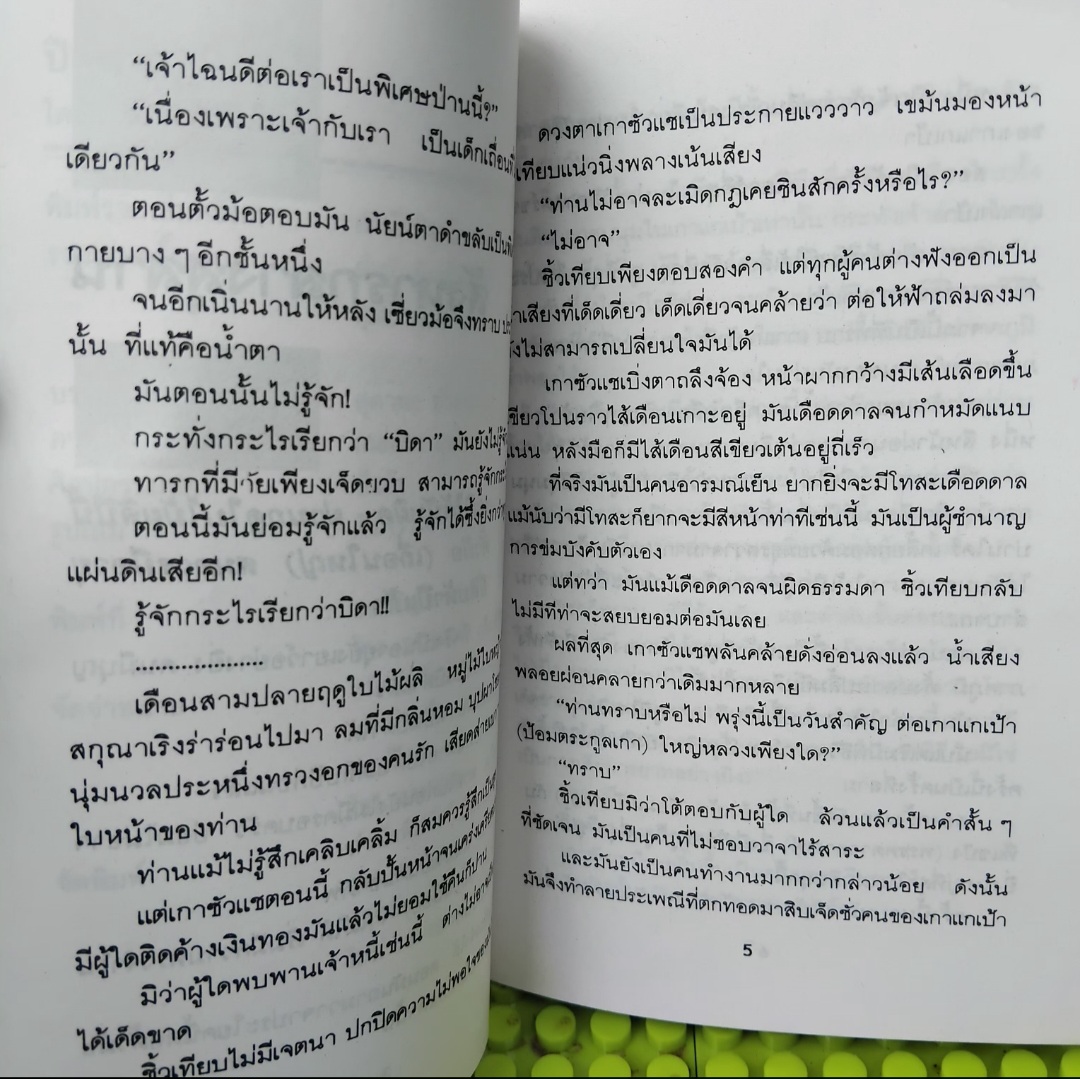 “เจ้าไฉนดีต่อเราเป็นพิเศษปานนี้?”
“เนื่องเพราะเจ้ากับเรา เป็นเด็กเถื่อน
เดียวกัน”
ตอนตั้วม้อตอบมัน นัยน์ตาดำขลับเป็น
กายบาง ๆ อีกชั้นหนึ่ง
จนอีกเนิ่นนานให้หลัง เซี่ยวม้อจึงทราบ
นั้น ที่แท้คือน้ำตา
มันตอนนั้นไม่รู้จัก!
กระทั่งกระไรเรียกว่า “บิดา” มันยังไม่รู้จั
ทารกที่มีวัยเพียงเจ็ดขวบ สามารถรู้จัก
ตอนนี้มันย่อมรู้จักแล้ว รู้จักได้ซึ้งยิ่งกว่า
แผ่นดินเสียอีก!
รู้จักกระไรเรียกว่าบิดา!!
....................
เดือนสามปลายฤดูใบไม้ผลิ หมู่ไม้ใบ
สกุณาเริงร่าร่อนไปมา ลมที่มีกลิ่นหอม
นุ่มนวลประหนึ่งทรวงอกของคนรัก เสียดส่าย
ใบหน้าของท่าน
ท่านแม้ไม่รู้สึกเคลิบเคลิ้ม ก็สมควรรู้สึกเป็น
แต่เกาซัวแชตอนนี้ กลับปั้นหน้าจนเคร่ง
มีผู้ใดติดค้างเงินทองมันแล้วไม่ยอมใช้คืนก็ปาน
มิว่าผู้ใดพบพานเจ้าหนี้เช่นนี้ ต่างไม่อาจ
ได้เด็ดขาด
ซิ้วเทียบไม่มีเจตนา ปกปิดความไม่พอใจของ
ดวงตาเกาซัวแชเป็นประกายแวววาว เขม้นมองหน้า
เทียบแน่วนิ่งพลางเน้นเสียง
“ท่านไม่อาจละเมิดกฎเคยชินสักครั้งหรือไร?”
“ไม่อาจ”
ซิ้วเทียบเพียงตอบสองคำ แต่ทุกผู้คนต่างฟังออกเป็น
เสียงที่เด็ดเดี่ยว เด็ดเดี่ยวจนคล้ายว่า ต่อให้ฟ้าถล่มลงมา
ยังไม่สามารถเปลี่ยนใจมันได้
เกาซัวแชเบิ่งตาถลึงจ้อง หน้าผากกว้างมีเส้นเลือดขึ้น
เขียวโปนราวไส้เดือนเกาะอยู่ มันเดือดดาลจนกำหมัดแนบ
แน่น หลังมือก็มีไส้เดือนสีเขียวเต้นอยู่ถี่เร็ว
ที่จริงมันเป็นคนอารมณ์เย็น ยากยิ่งจะมีโทสะเดือดดาล
แม้นับว่ามีโทสะก็ยากจะมีสีหน้าท่าทีเช่นนี้ มันเป็นผู้ชำนาญ
การข่มบังคับตัวเอง
แต่ทว่า มันแม้เดือดดาลจนผิดธรรมดา ซิ้วเทียบกลับ
ไม่มีทีท่าจะสยบยอมต่อมันเลย
ผลที่สุด เกาซัวแชพลันคล้ายดั่งอ่อนลงแล้ว น้ำเสียง
พลอยผ่อนคลายกว่าเดิมมากหลาย
“ท่านทราบหรือไม่ พรุ่งนี้เป็นวันสำคัญ ต่อเกาแกเป้า
(ป้อมตระกูลเกา) ใหญ่หลวงเพียงใด?”
“ทราบ”
ซิ้วเทียบมิว่าโต้ตอบกับผู้ใด ล้วนแล้วเป็นคำสั้น ๆ
ที่ชัดเจน มันเป็นคนที่ไม่ชอบวาจาไร้สาระ
และมันยังเป็นคนทำงานมากกว่ากล่าวน้อย ดังนั้น
มันจึงทำลายประเพณีที่ตกทอดมาสิบเจ็ดชั่วคนของเกาแกเป้า
5